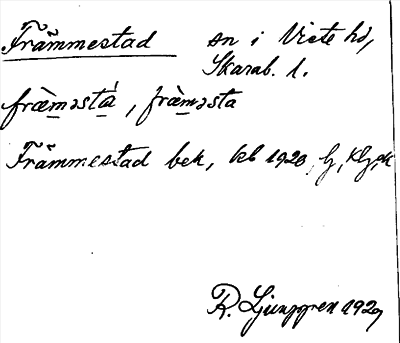 Främmestad sn i Viste hd,
Skarab. l.
fræ̀məstá, fræ̀məsta
Främmestad bek, kb 1920, lj, klj, ok
R. Ljunggren 1929